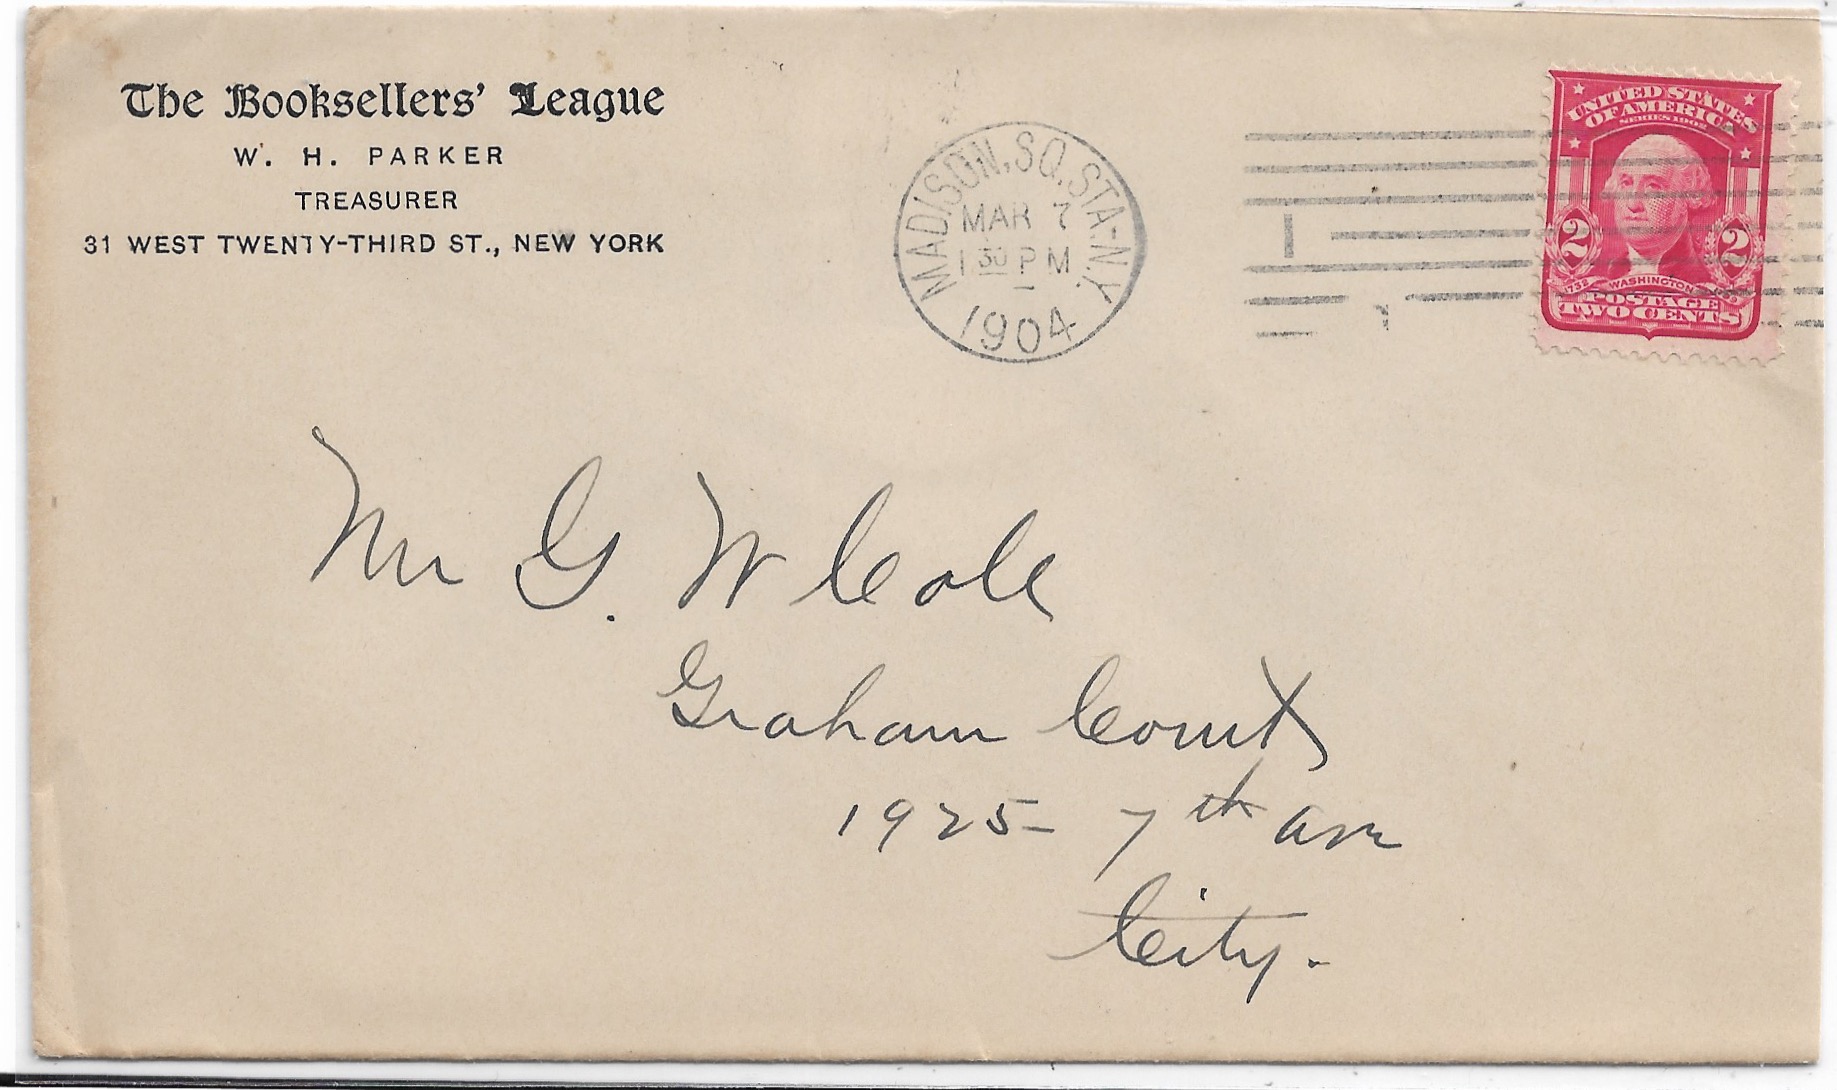 The Booksellers' League
W. H. PARKER
TREASURER
31 WEST TWENTY-THIRD ST., NEW YORK
MADISON, SQ. STA-N.Y.
MAR 7
1 30 PM
1904
1
UNITED STATES
OF AMERICA
SERIES 1902
2 2
1732 WASHINGTON 1799
POSTAGE
TWO CENTS
Mr G. W Cole
Graham Court
1925- 7th Ave
City.